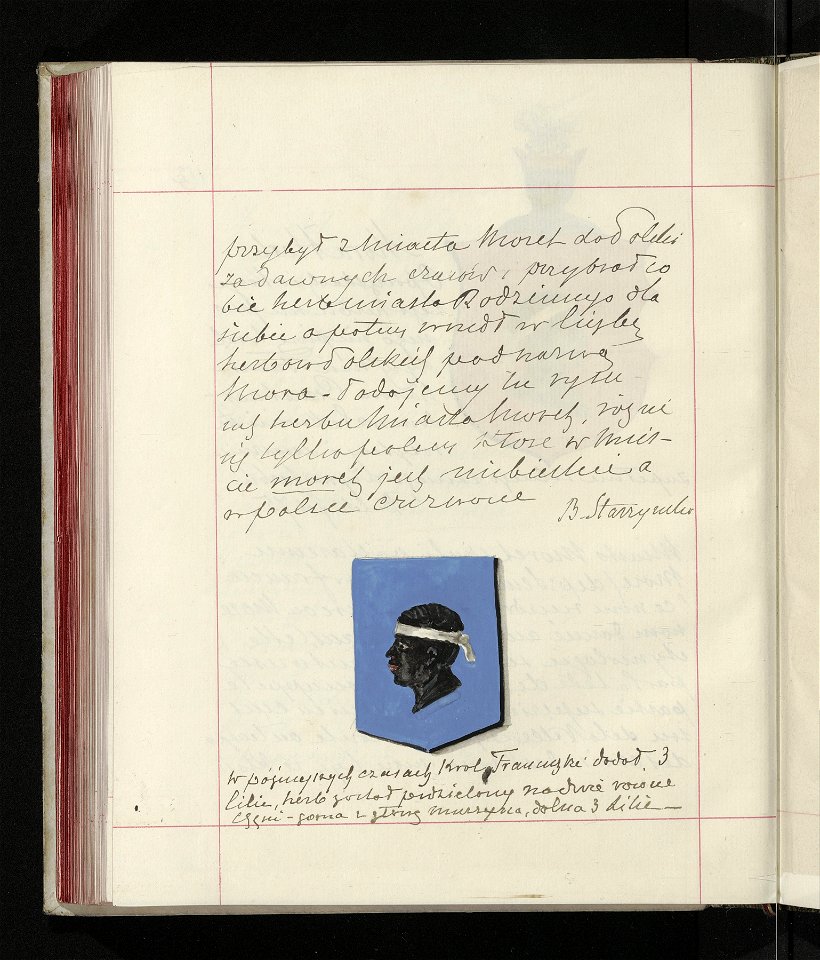 przybył z miasta Moret do Polski
za dawnych czasów i przybrał so
bie herb miasta Rodzinnego dla
siebie a potem wszedł w liczbę
herbow Polskich pod nazwą
Mora - dodajemy tu rysu-
nek herbu Miasta Moret, rożni
się tylko polem ktore w mieś-
cie moret jest niebieskie a
w Polsce czerwone
B. Starzyński
w późniejszych czasach Krol Francuzki dodał 3
lilie, herb został podzielony na dwie rowne
części - gorna z głową murzyna, dolna 3 Lilie -